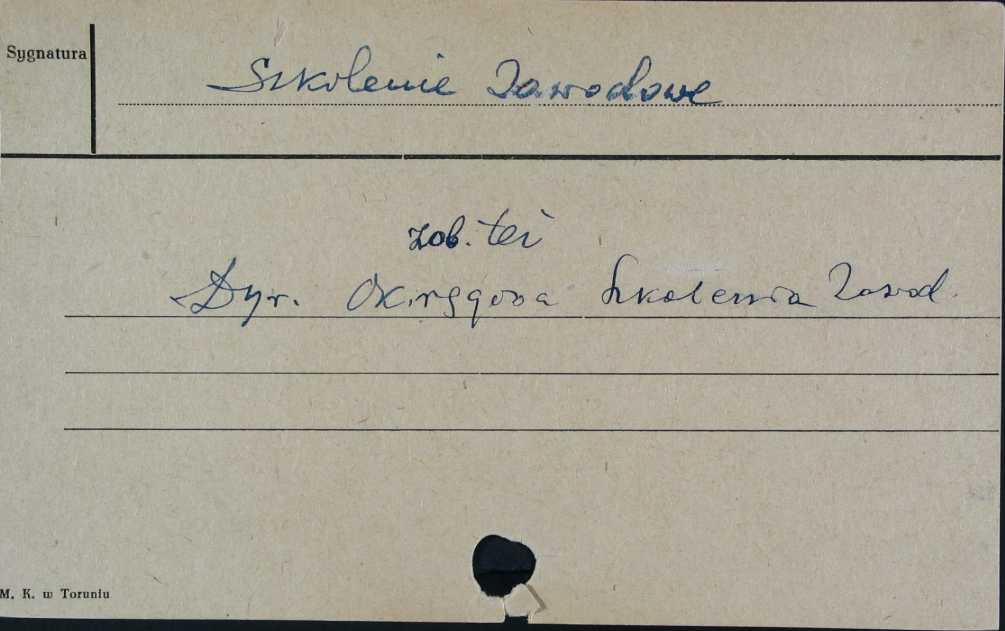 Sygnatura
Szkolenie Zawodowe
zob. też
Dyr. Okręgowa Szkolenia Zawod.
M. K. w Toruniu